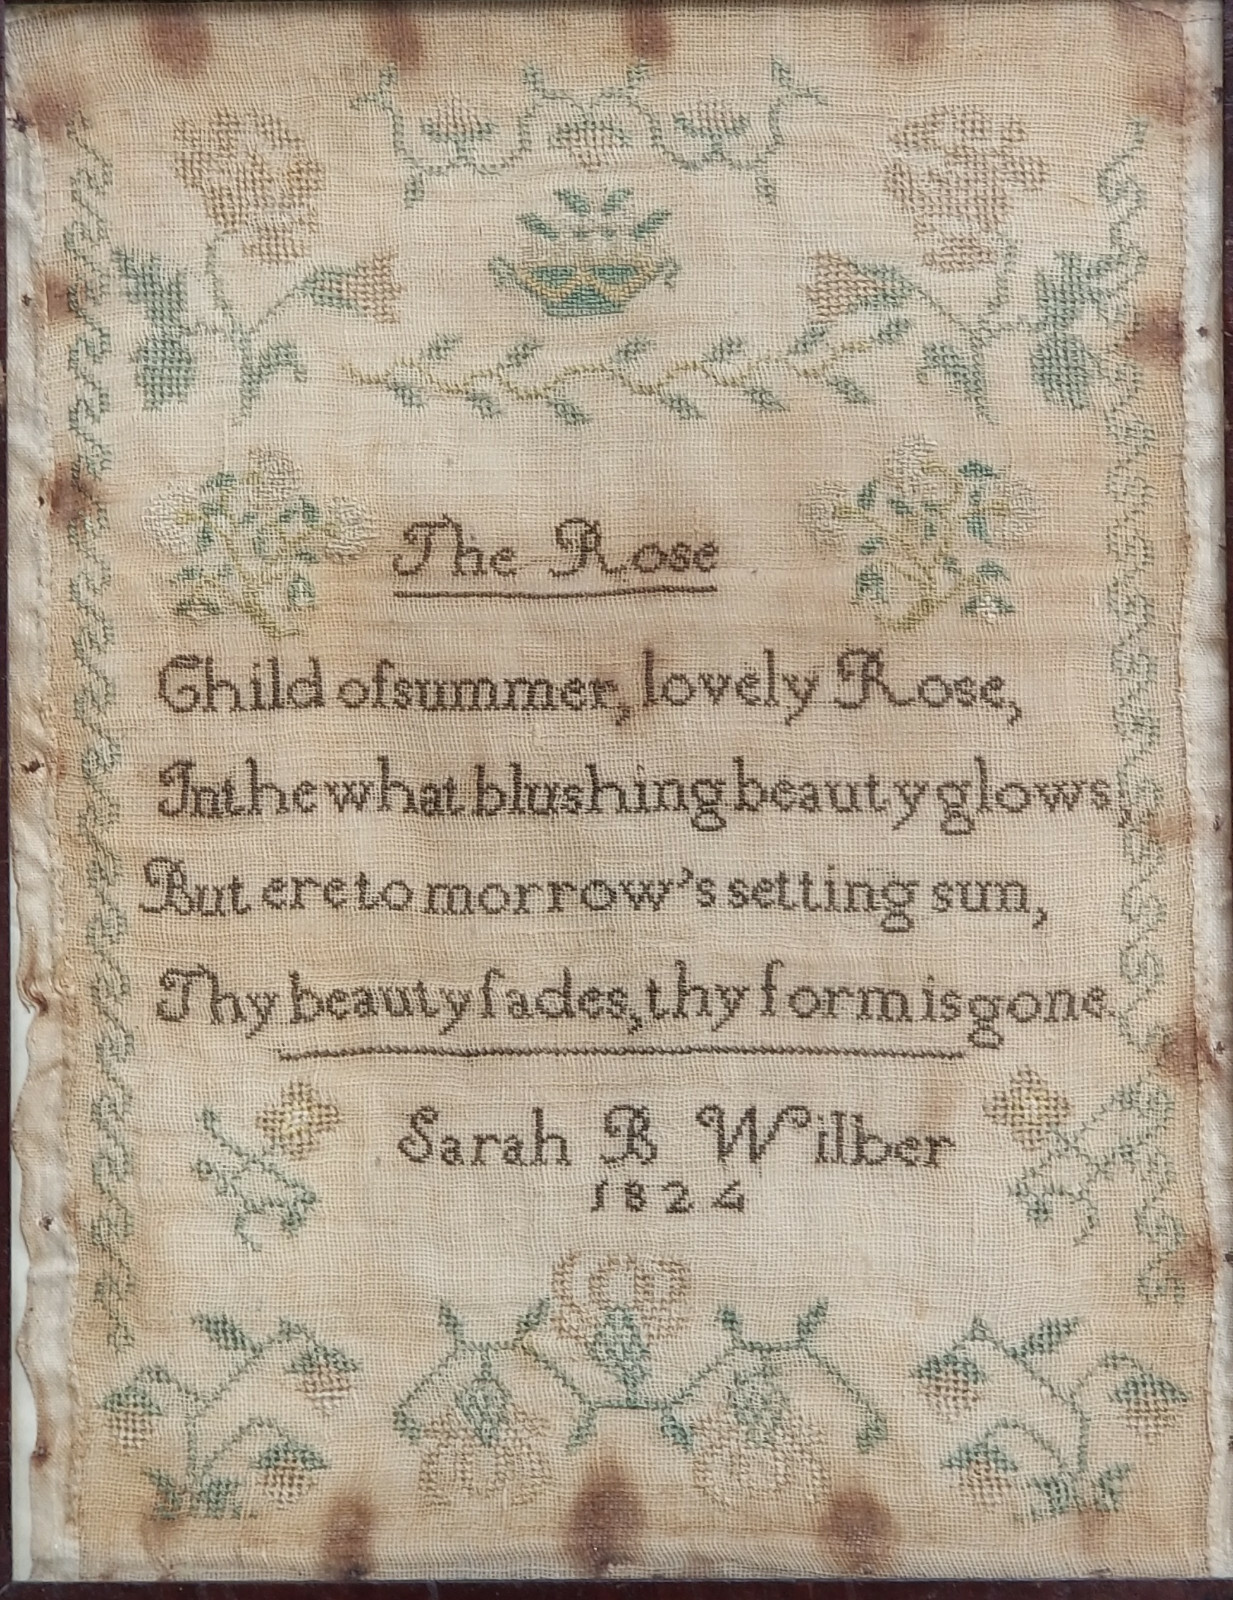 The Rose
Child of summer, lovely Rose,
In the what blushing beauty glows,
But ere to morrow's setting sun,
Thy beauty fades, thy form is gone.
Sarah B Wilber
1824